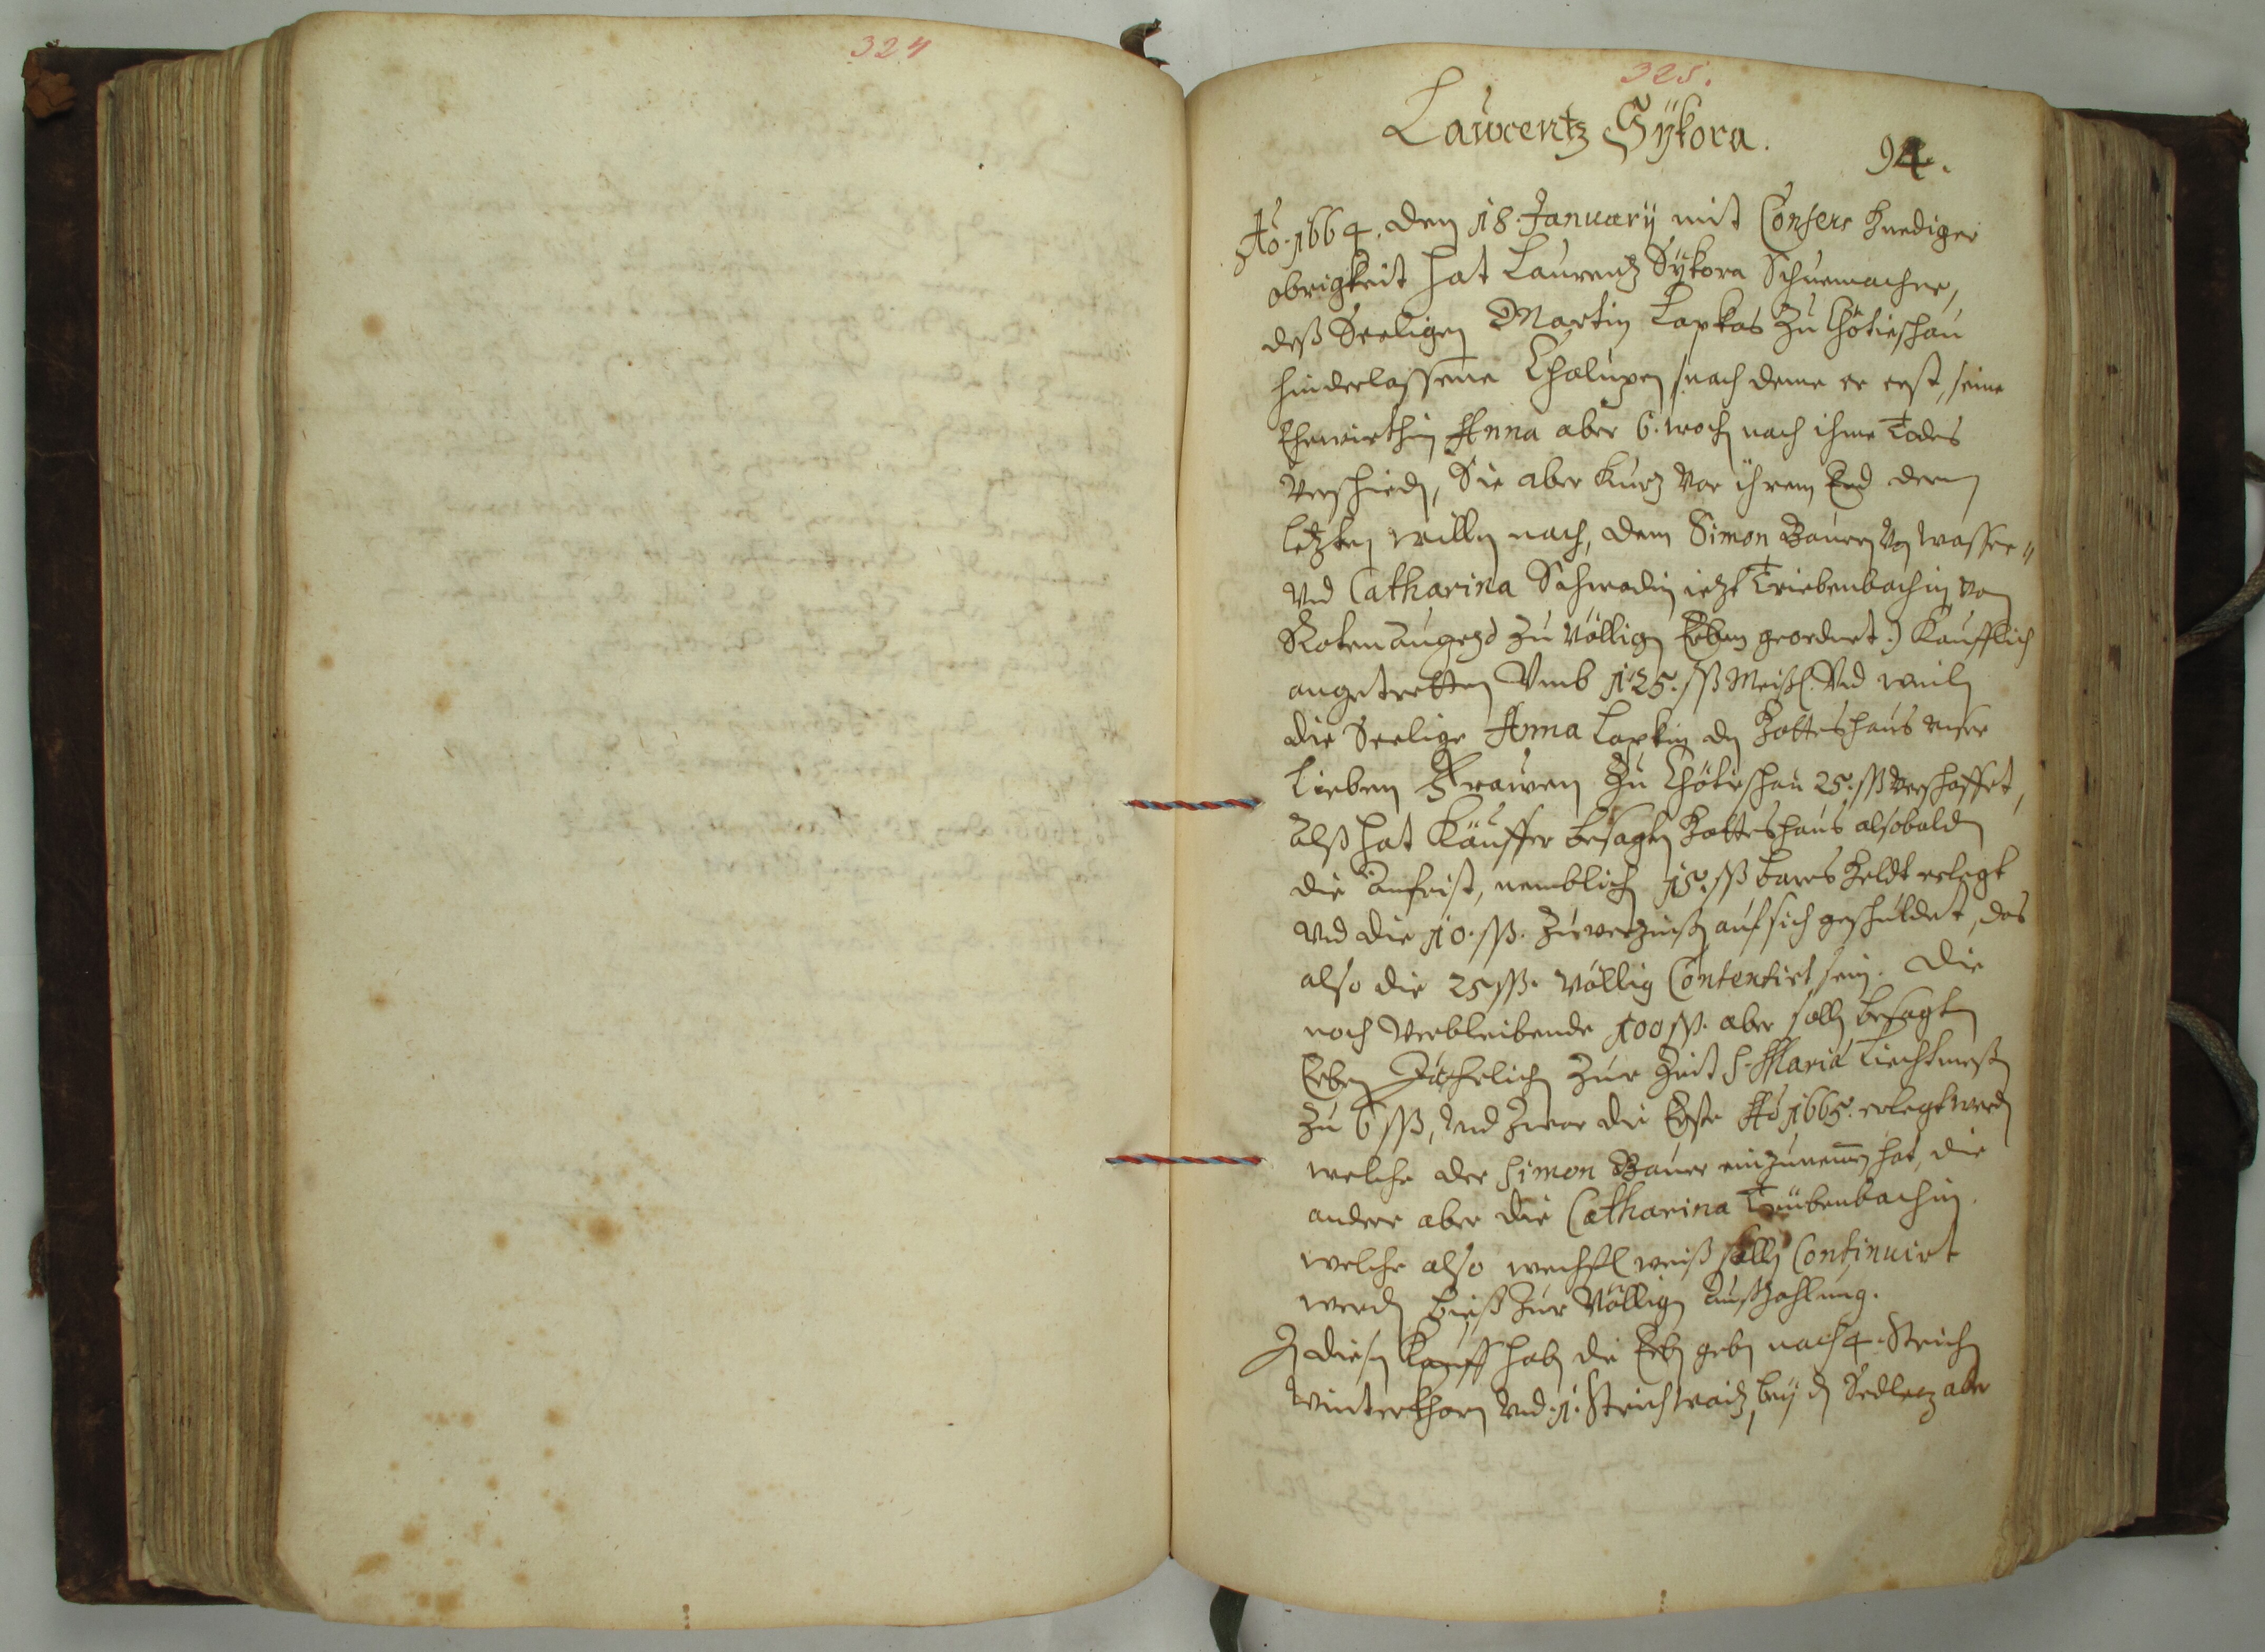 324
325.
Laurentz Sÿkora.
94.
Aõ. 1664. den 18. Januarÿ mit Consens Gnediger
obrigkeit hat Laurentz Sÿkora Schuemacher,
deß Seeligen Martin Lapkas zu Chotieschau
hinderlassene Chalupen (nach deme er erst, seine
Ehewirthin Anna aber 6. woch nach ihme Todes
verschieden, Sie aber kurz vor ihrem End dem
letzten willen nach, dem Simon Bauern von wasser„
und Catharina Schmadin ietzt Triebenbachin von
Rotenaugezd zu völligen Erben geordnet.) Kaufflich
angetretten Umb 125. ßß Meißl. Und weiln
die Seelige Anna Lapkin den Gotteshaus unser
Lieben Frawen zu Chotieschau 25. ßß verschaffet,
Alß hat Kauffer besagten Gotteshaus alsobalden
die anfrist, nemblich 15. ßß bares Geldt erlegt
Und die 10. ßß. zuverzinßen auf sich geschuldet, das
also die 25 ßß. völlig Contentirt sein. Die
noch Verbleibende 100 ßß. aber sollen besagten
Erben Jährlich zur Zeit S. Maria Liechtmeß
zu 6 ßß, Und zwar die Erste Aõ 1665. erlegt werden
welche der Simon Bauer einzunemen hat, die
andere aber die Catharina Trübenbachin.
welche also wechsel weiß sollen Continuirt
werden bieß zur Völligen Außzahlung.
In diesen Kauff haben die Erben geben nach 4. Strich
Winterkhorn Und 1. Strich waitz, beÿ den Sedletz aber